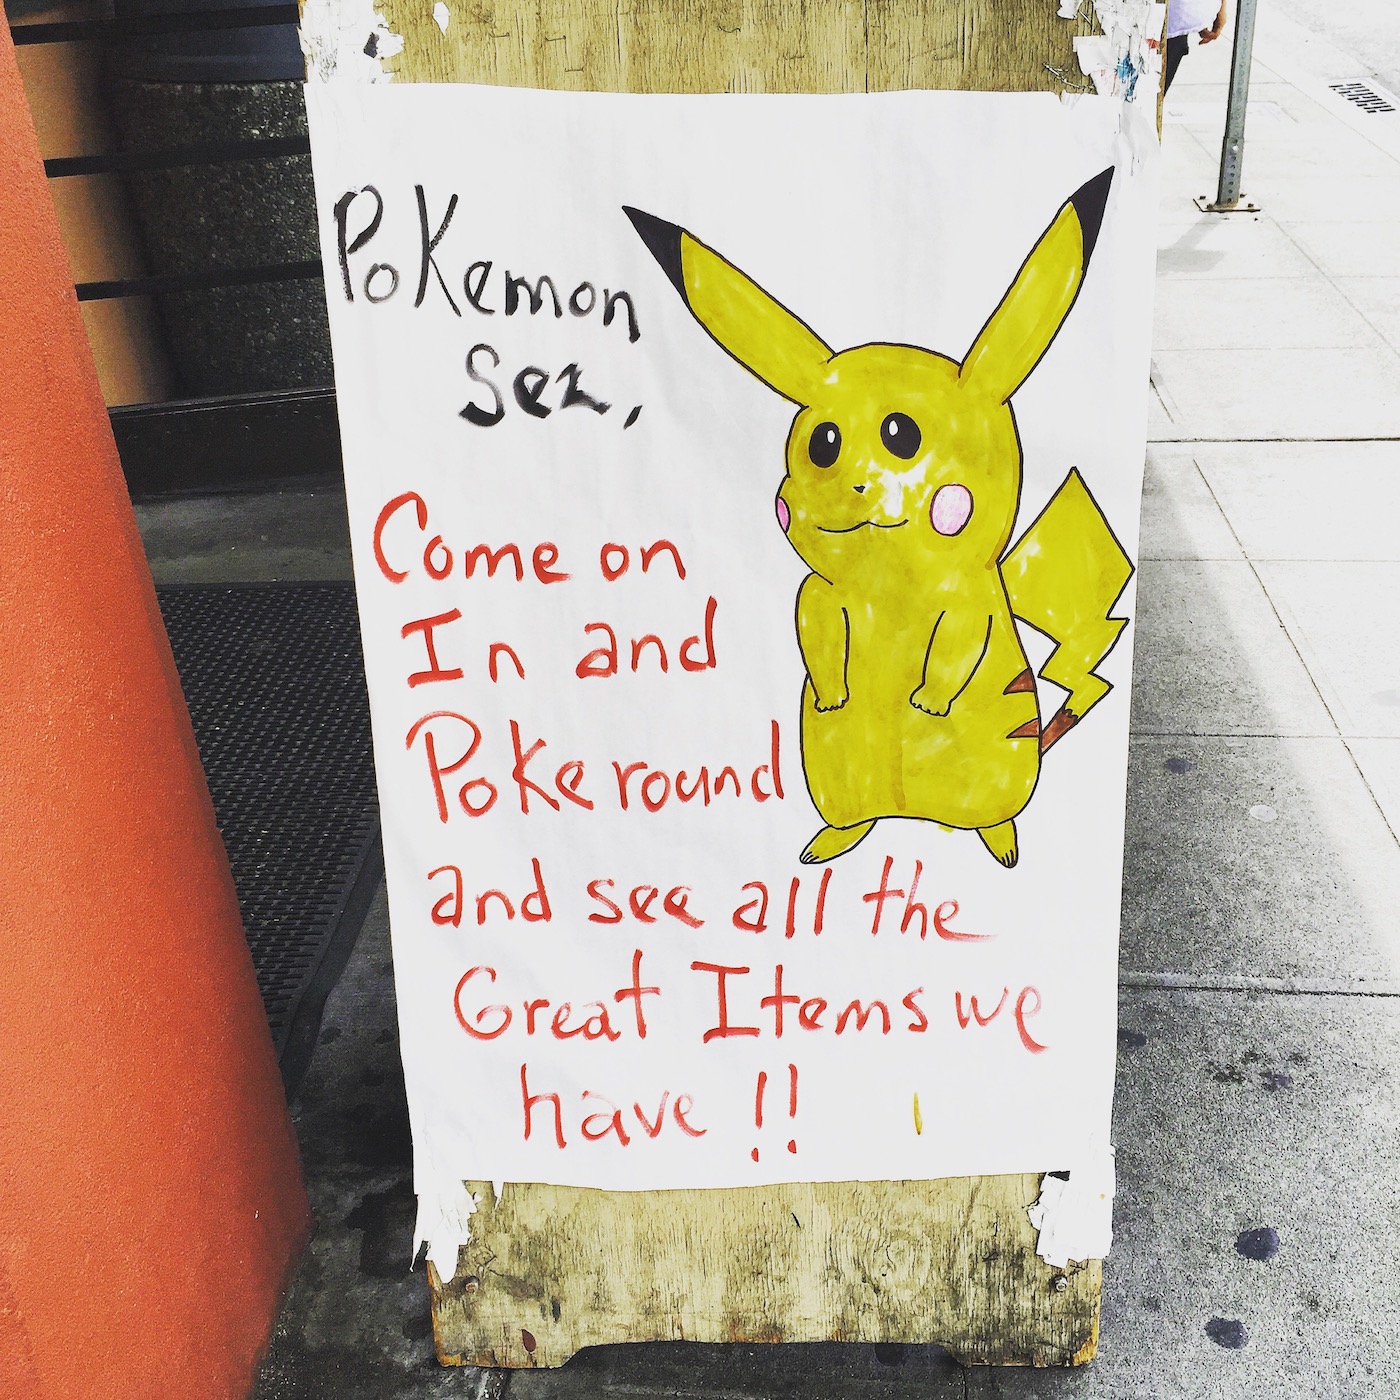 Pokemon
Sez,
Come on
In and
Poke round
and see all the
Great Items we
have !!